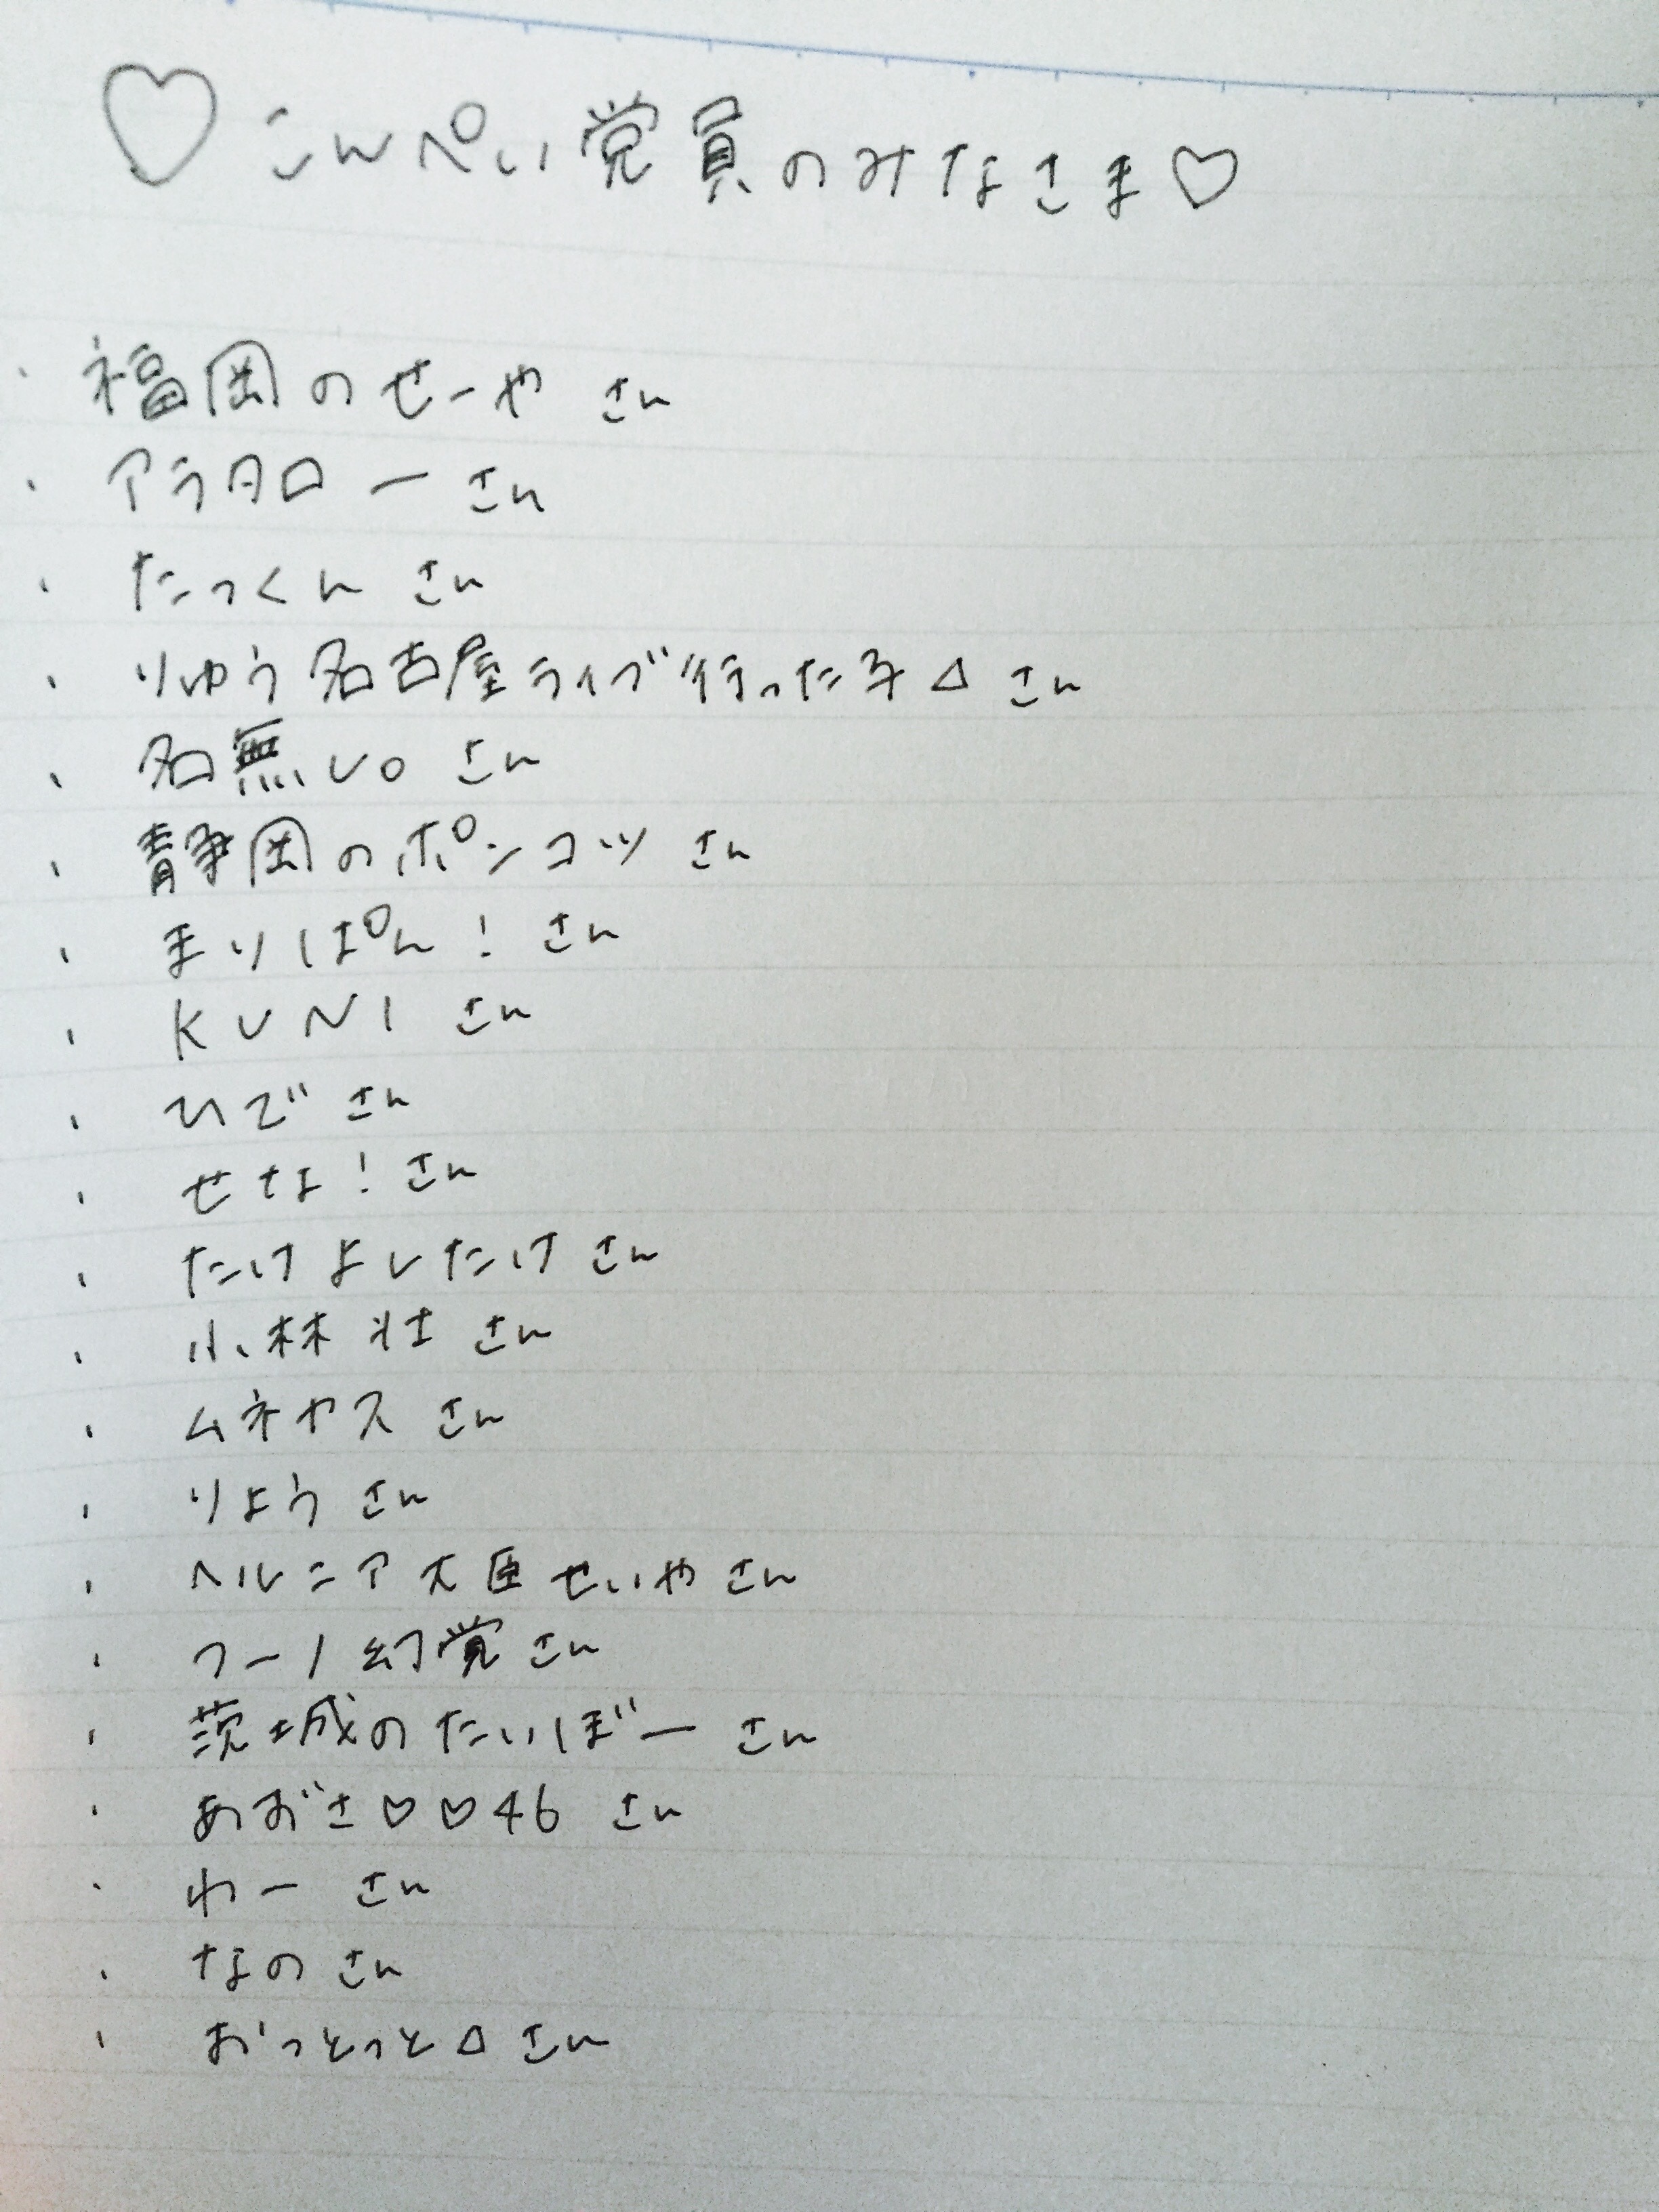 ♡こんぺい党員のみなさま♡
・福岡のせーや さん
・アラタロー さん
・たっくん さん
・りゅう名古屋ライブ行った子△ さん
・名無し。さん
・静岡のポンコツ さん
・まりぱん! さん
・KUNI さん
・ひで さん
・せな! さん
・たけよしたけ さん
・小林壮 さん
・ムネヤス さん
・りょう さん
・ヘルニア大臣せいや さん
・フーノ幻覚 さん
・茨城のたいぼー さん
・あおさ♡♡46 さん
・わー さん
・なの さん
・おっとっと△ さん